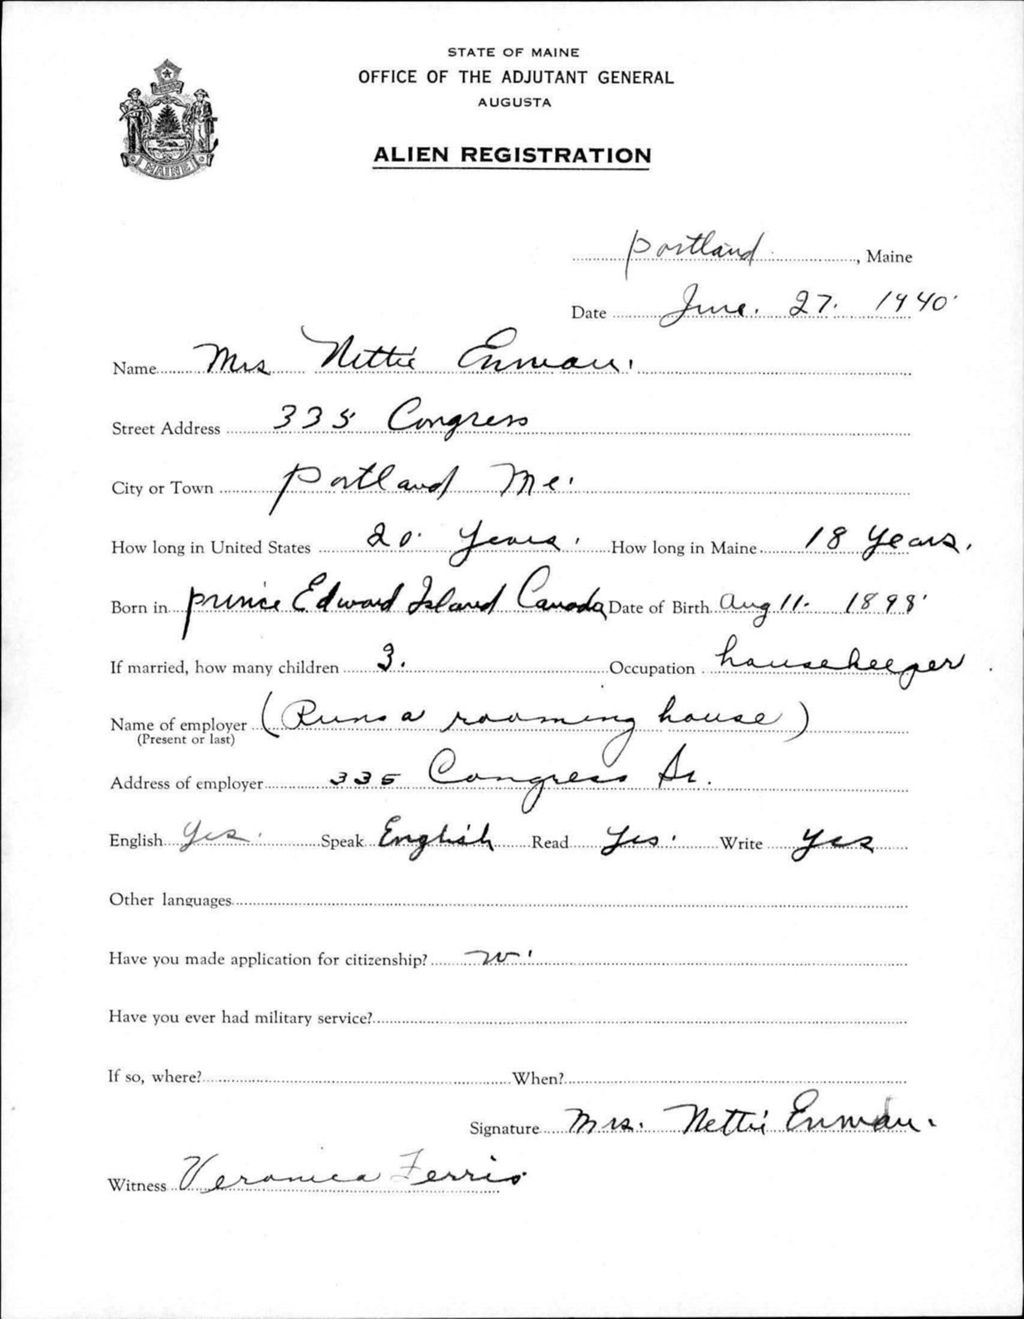 STATE OF MAINE
OFFICE OF THE ADJUTANT GENERAL
AUGUSTA
MAINE
ALIEN REGISTRATION
Portland, Maine
Date June. 27. 1940
Name Mrs Nettie Enman.
Street Address 335 Congress
City or Town Portland Me.
How long in United States 20 Years. How long in Maine 18 Years.
Born in Prince Edward Island Canada Date of Birth Aug 11. 1898
If married, how many children 3. Occupation housekeeper
Name of employer (Runs a rooming house)
(Present or last)
Address of employer 335 Congress St.
English Yes. Speak English Read Yes. Write Yes
Other languages
Have you made application for citizenship? no
Have you ever had military service?
If so, where? When?
Signature Mrs. Nettie Enman.
Witness Veronica Ferris